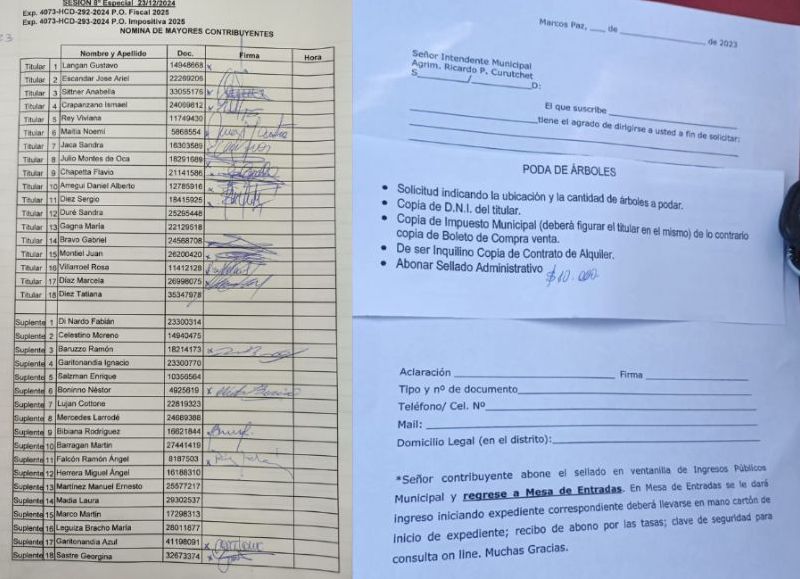 SESION 8º Especial 23/12/2024
Exp. 4073-HCD-292-2024 P.O. Fiscal 2025
Exp. 4073-HCD-293-2024 P.O. Impositiva 2025
NOMINA DE MAYORES CONTRIBUYENTES
Nombre y Apellido Doc. Firma Hora
Titular 1 Langan Gustavo 14948668 x
Titular 2 Escandar Jose Ariel 22269206
Titular 3 Sittner Anabella 33055176 x
Titular 4 Crapanzano Ismael 24069812 x
Titular 5 Rey Viviana 11749430
Titular 6 Maitia Noemí 5868554
Titular 7 Jaca Sandra 16303589
Titular 8 Julio Montes de Oca 18291689
Titular 9 Chapetta Flavio 21141586 x
Titular 10 Arregui Daniel Alberto 12785916 x
Titular 11 Diez Sergio 18415925 x
Titular 12 Duré Sandra 25285448
Titular 13 Gagna María 22129518
Titular 14 Bravo Gabriel 24568708
Titular 15 Montiel Juan 26200420 x
Titular 16 Villarroel Rosa 11412128
Titular 17 Díaz Marcela 26998075
Titular 18 Diez Tatiana 35347978
Suplente 1 Di Nardo Fabián 23300314
Suplente 2 Celestino Moreno 14940475
Suplente 3 Baruzzo Ramón 18214173 x
Suplente 4 Garitonandia Ignacio 23300770
Suplente 5 Salzman Enrique 10359564
Suplente 6 Boninno Néstor 4925619 x
Suplente 7 Lujan Cottone 22819323
Suplente 8 Mercedes Larrodé 24689388
Suplente 9 Bibiana Rodriguez 16621844
Suplente 10 Barragan Martin 27441419
Suplente 11 Falcón Ramón Ángel 8187503 x
Suplente 12 Herrera Miguel Ángel 16188310
Suplente 13 Martínez Manuel Ernesto 25577217
Suplente 14 Madia Laura 29302537
Suplente 15 Marco Martin 17298313
Suplente 16 Leguiza Bracho María 28011877
Suplente 17 Garitonandia Azul 41198091 x
Suplente 18 Sastre Georgina 32673374 x
Marcos Paz, ___ de ____________ de 2023
Señor Intendente Municipal
Agrim. Ricardo P. Curutchet
S________/__________D:
El que suscribe ____________________
____________________tiene el agrado de dirigirse a usted a fin de solicitar:
PODA DE ÁRBOLES
• Solicitud indicando la ubicación y la cantidad de árboles a podar.
• Copia de D.N.I. del titular.
• Copia de Impuesto Municipal (deberá figurar el titular en el mismo) de lo contrario
copia de Boleto de Compra venta.
• De ser Inquilino Copia de Contrato de Alquiler.
• Abonar Sellado Administrativo $10.000
Aclaración ____________________ Firma ____________
Tipo y nº de documento____________________
Teléfono/ Cel. Nº____________________
Mail: ____________________
Domicilio Legal (en el distrito):____________________
*Señor contribuyente abone el sellado en ventanilla de Ingresos Públicos
Municipal y regrese a Mesa de Entradas. En Mesa de Entradas se le dará
ingreso iniciando expediente correspondiente deberá llevarse en mano cartón de
inicio de expediente; recibo de abono por las tasas; clave de seguridad para
consulta on line. Muchas Gracias.